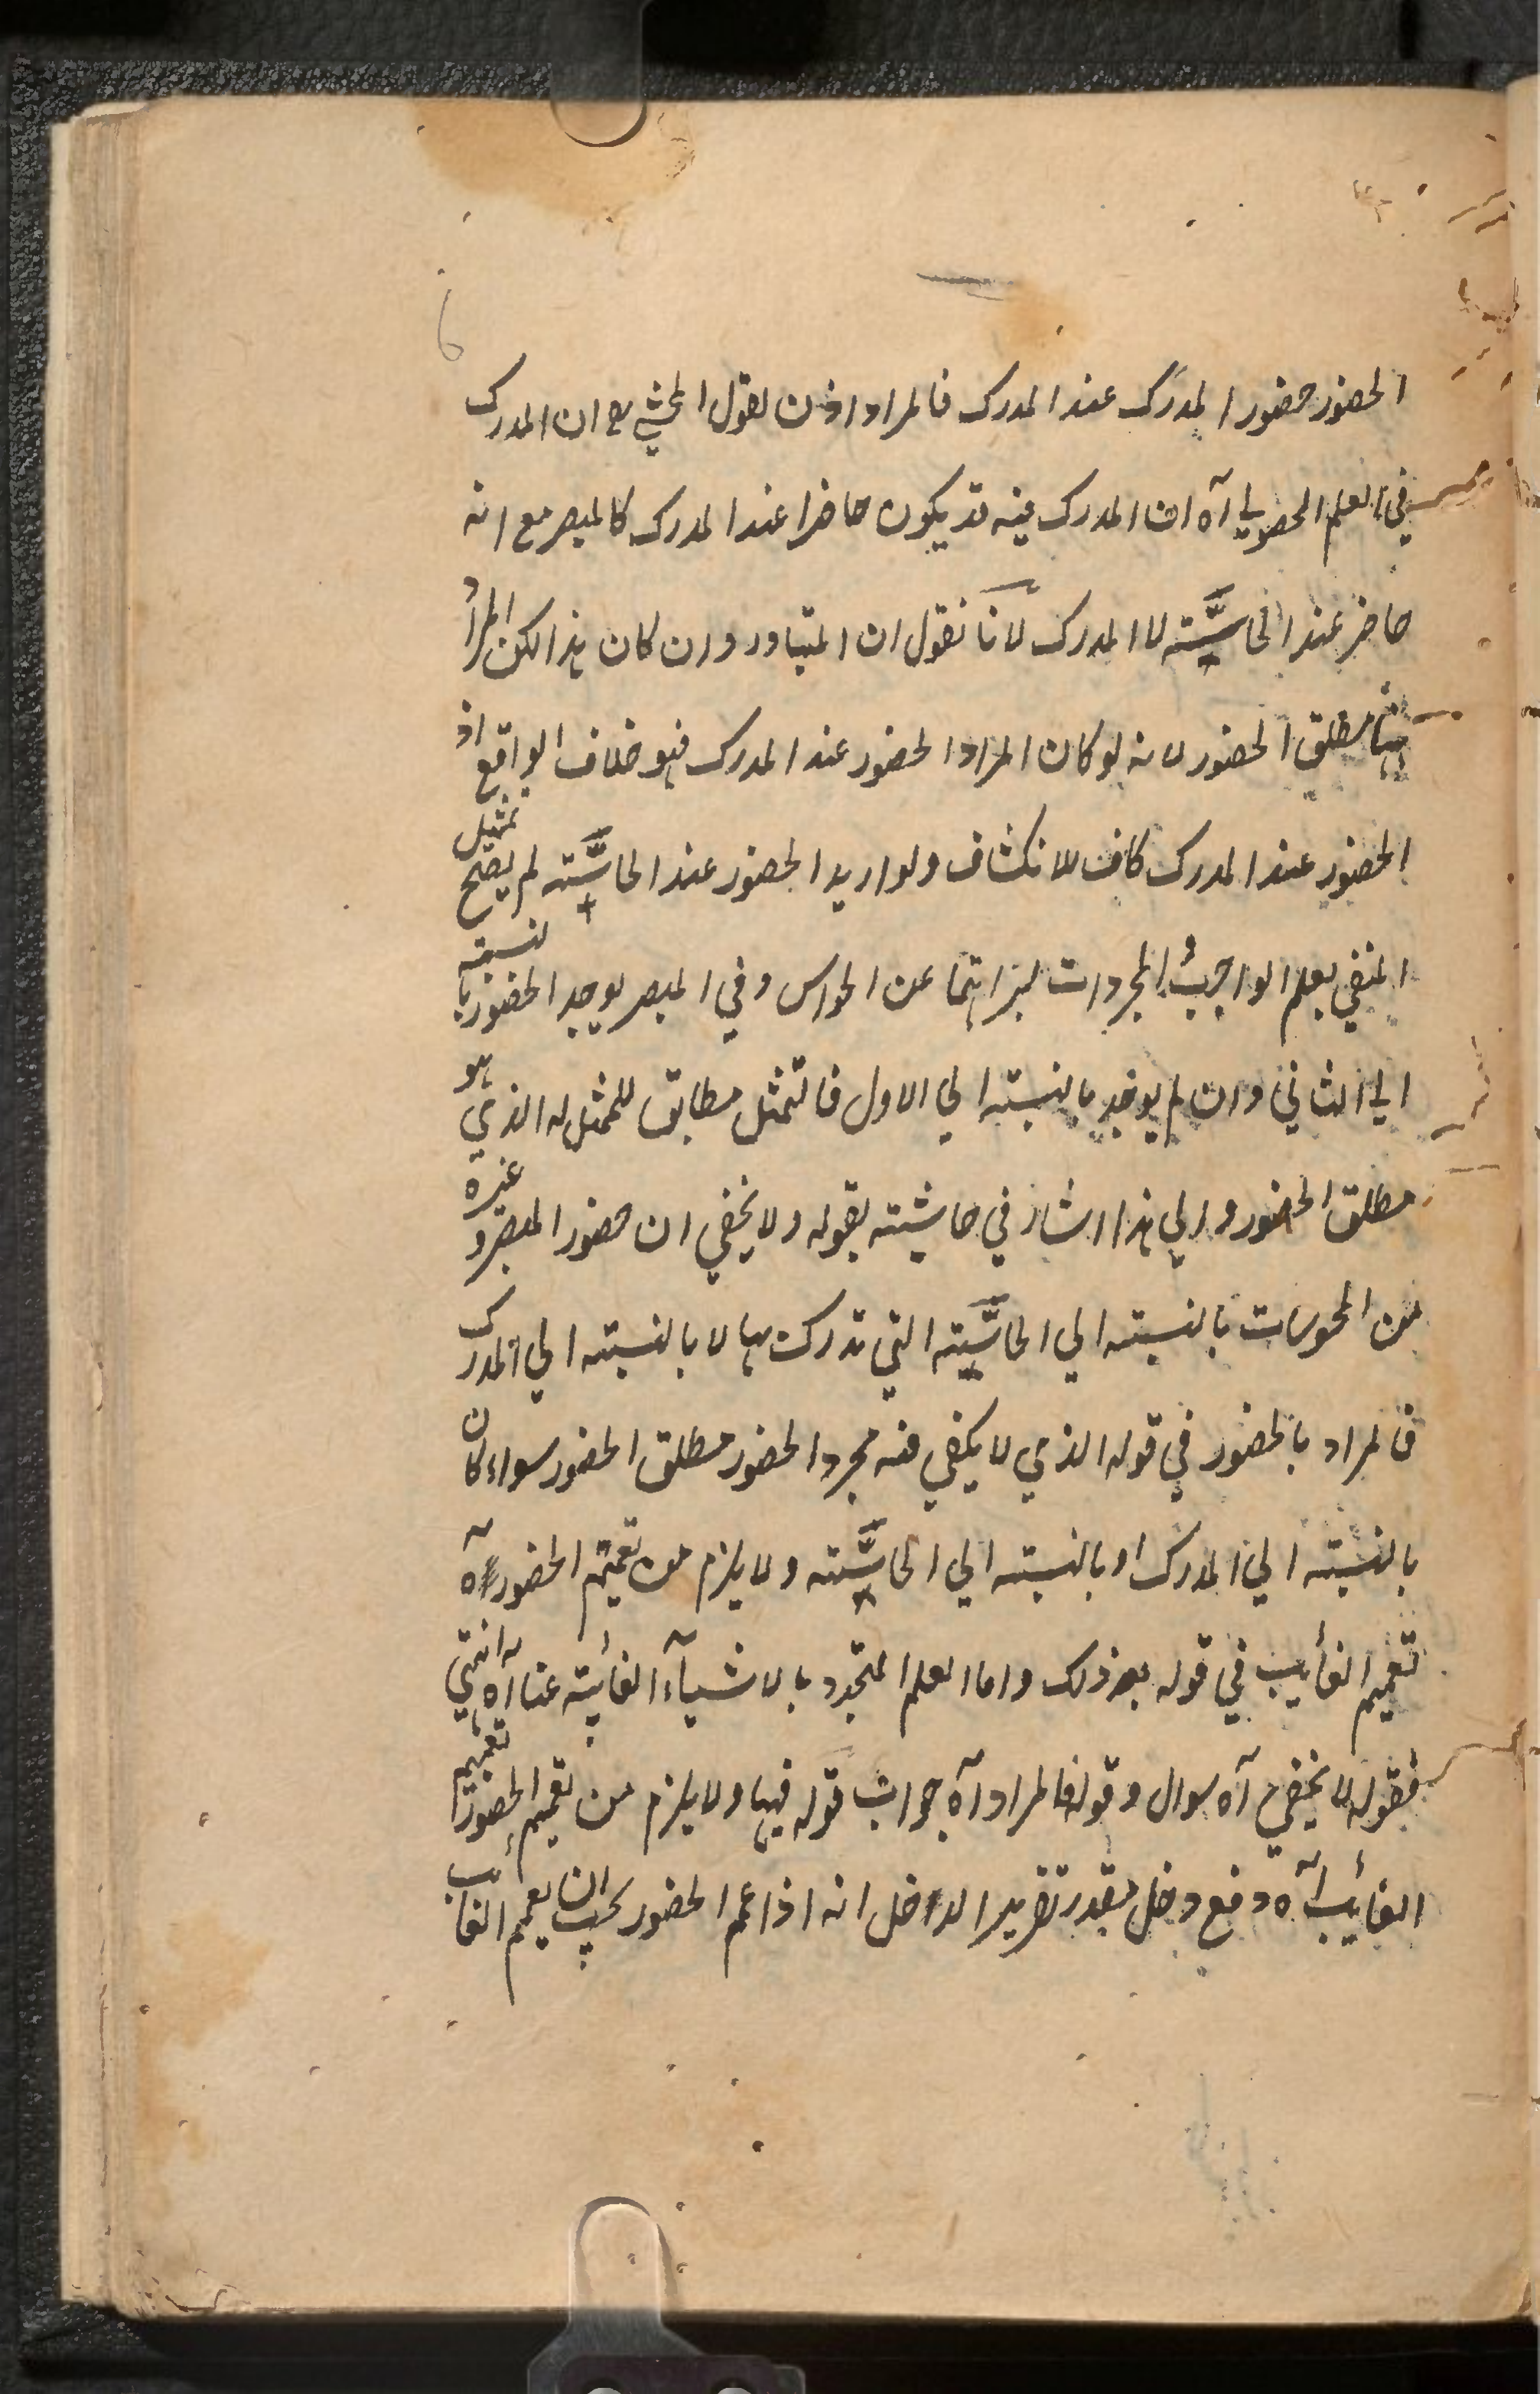 الحضور حضور المدرَك عند المدرك فالمراد اذن لقول المحشي رح ان المدرك
في العلم الحصولي آه ان المدرك فيه قد يكون حاضرا عند المدرك كالمبصر مع انه
حاضر عند الحاسّة لا المدرك لانا نقول ان المتبادر وان كان هذا لكن المراد
ههنا مطلق الحضور لانه لو كان المراد الحضور عند المدرك فهو خلاف الواقع اذ
الحضور عند المدرك كاف للانكشاف ولو اريد الحضور عند الحاسّة لم يصح تمثيل
المنفي بعلم الواجب والمجردات لبراءتها عن الحواس وفي المبصر يوجد الحضور بالنسبة
الي الثاني وان لم يوجد بالنسبة الي الاول فالتمثل مطابق للممثل له الذي هو
مطلق الحضور والي هذا اشار في حاشيته بقوله ولا يخفي ان حضور المبصر وغيره
من المحسوسات بالنسبة الي الحاسّة التي تدرك بها لا بالنسبة الي المدرك
فالمراد بالحضور في قوله الذي لا يكفي فيه مجرد الحضور مطلق الحضور سواء كان
بالنسبة الي المدرك او بالنسبة الي الحاسّة ولا يلزم من تعميم الحضور آه
تعميم الغائب في قوله بعد ذلك واما العلم المتجدد بالاشياء الغائبة عنا آه انتهي
فقوله لا يخفي آه سوال وقوله فالمراد آه جواب قوله فيها ولا يلزم من تعميم الحضور تعميم
الغائب آه دفع دخل مقدر تقرير الدخل انه اذا عم الحضور يجب ان يعمم الغائب